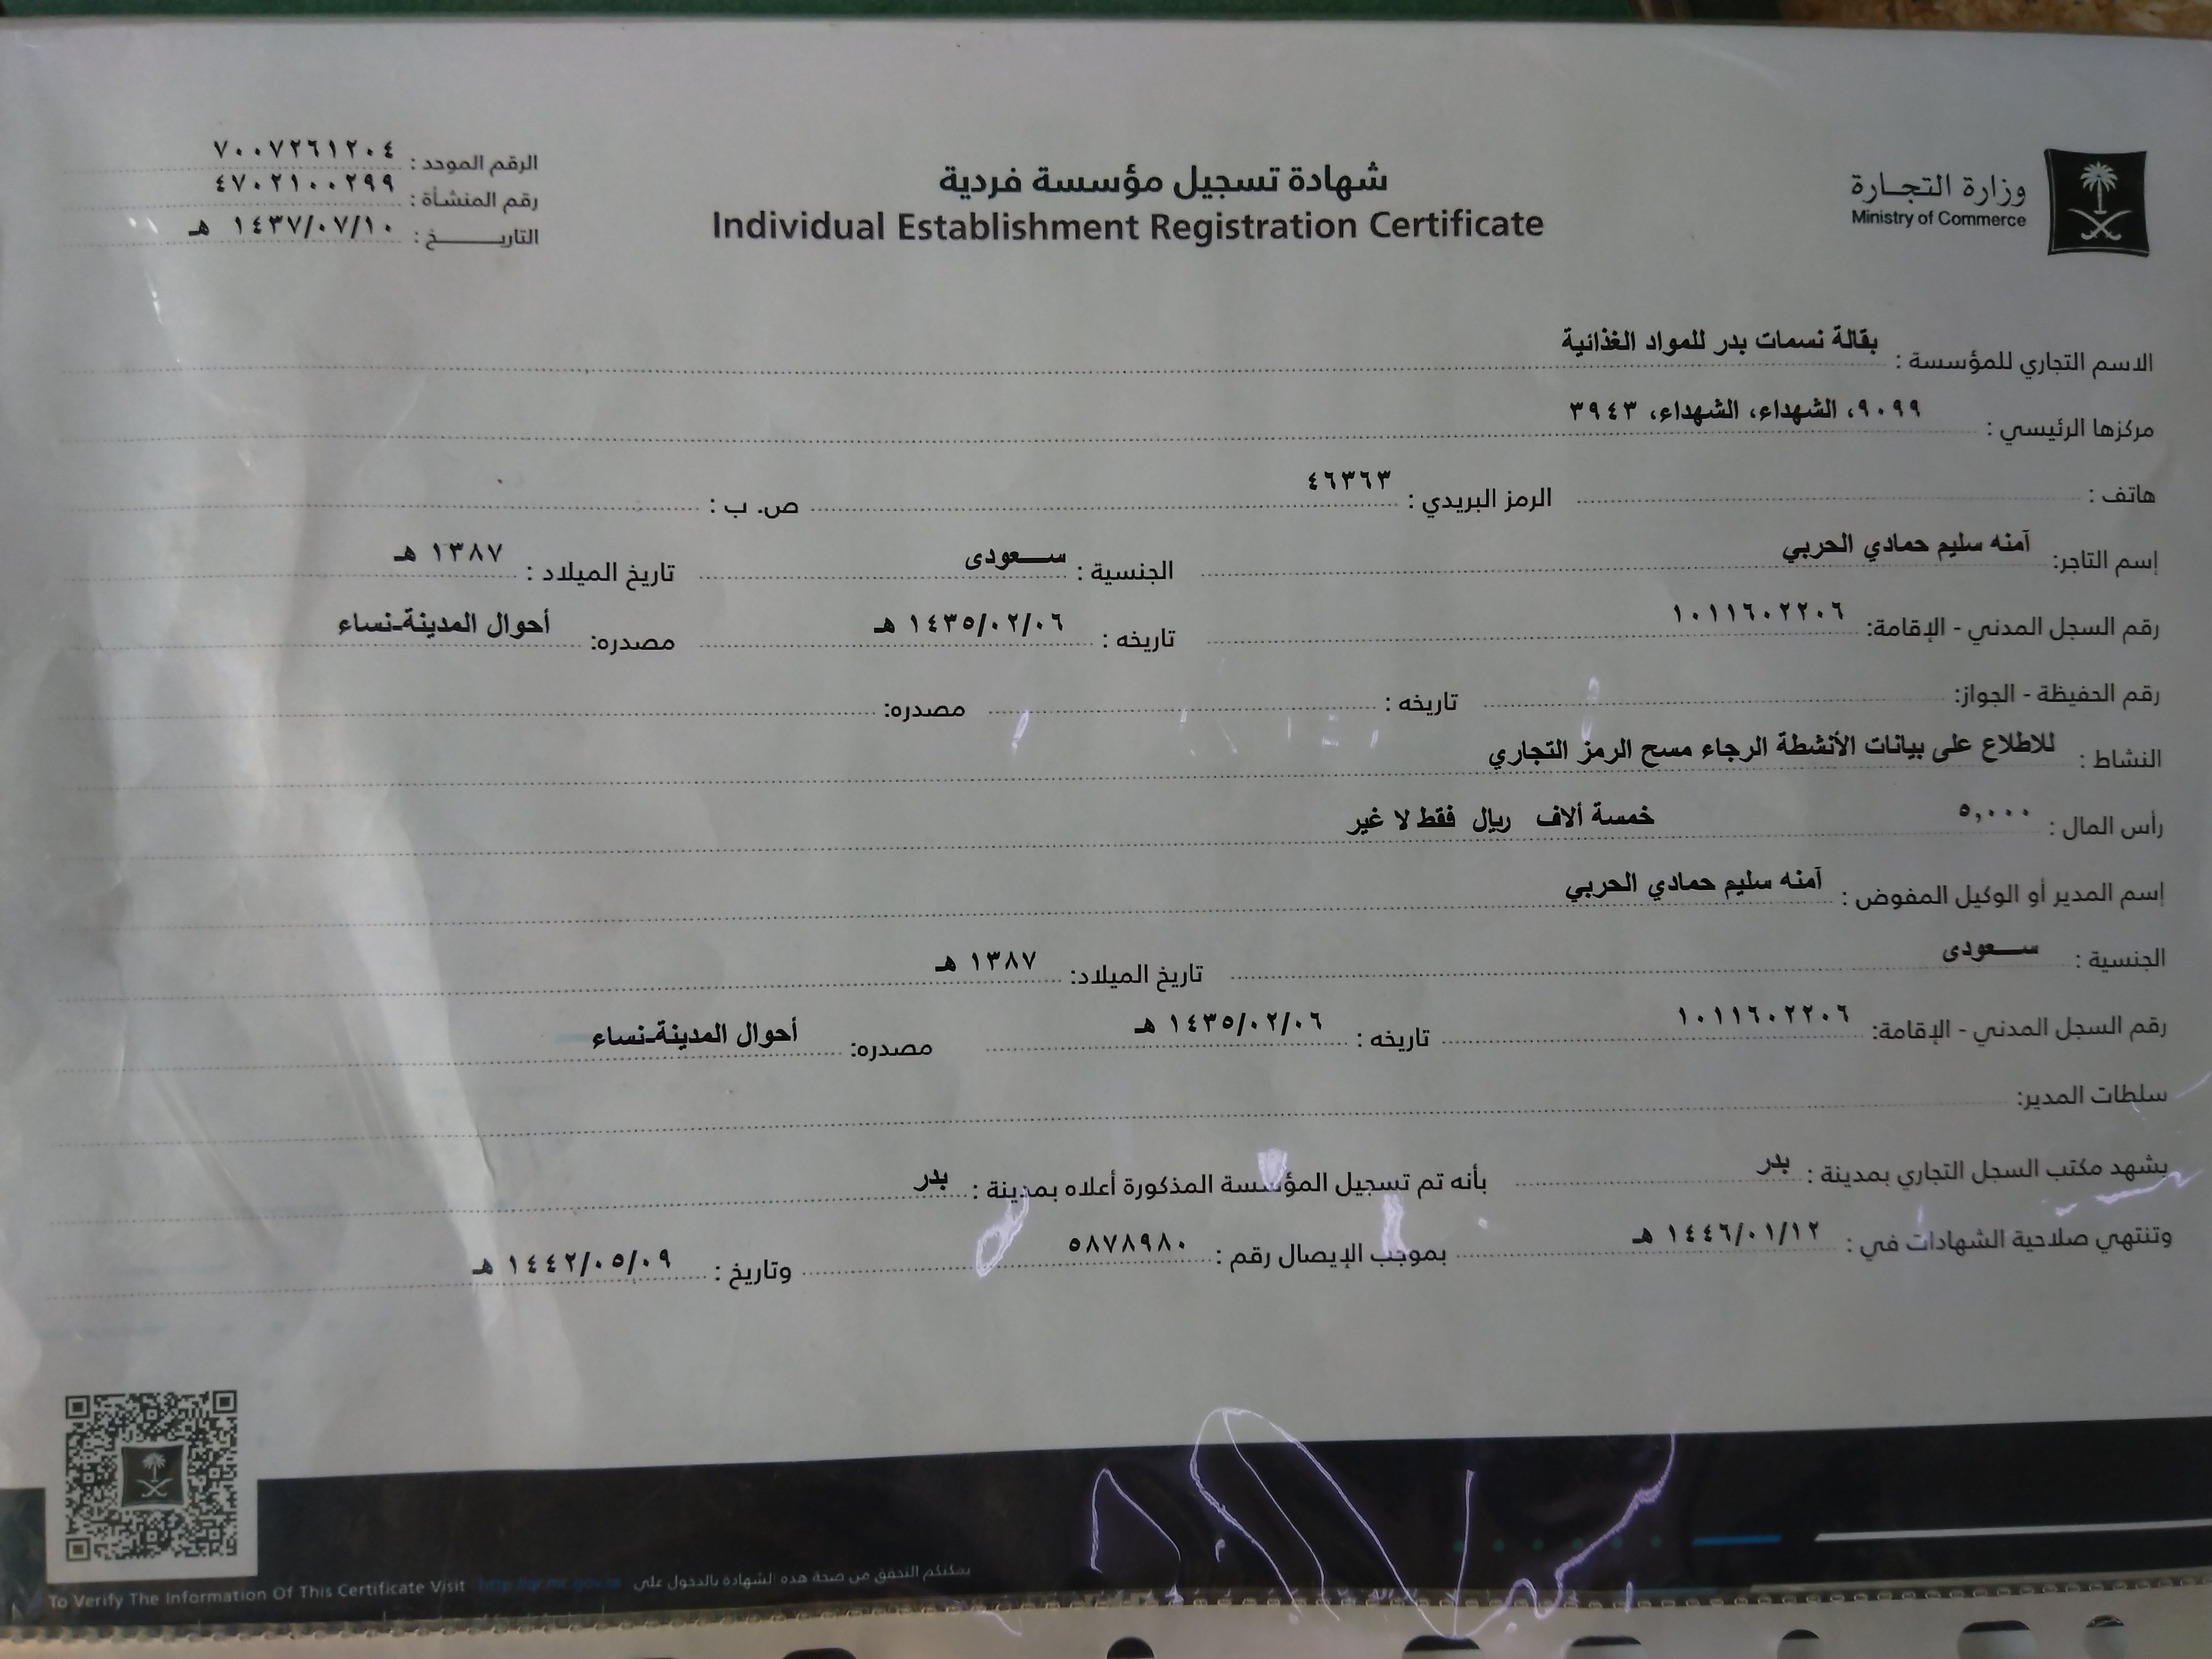 وزارة التجارة
Ministry of Commerce
شهادة تسجيل مؤسسة فردية
Individual Establishment Registration Certificate
الرقم الموحد : ٧٠٠٧٢٦١٢٠٤
رقم المنشأة : ٤٧٠٢١٠٠٢٩٩
التاريخ : ١٤٣٧/٠٧/١٠ هـ
الاسم التجاري للمؤسسة : بقالة نسمات بدر للمواد الغذائية
مركزها الرئيسي : ٩٠٩٩، الشهداء، الشهداء، ٣٩٤٣
هاتف : الرمز البريدي : ٤٦٣٦٣ ص. ب :
إسم التاجر: آمنه سليم حمادي الحربي الجنسية : سعودى تاريخ الميلاد : ١٣٨٧ هـ
رقم السجل المدني - الإقامة: ١٠١١٦٠٢٢٠٦ تاريخه : ١٤٣٥/٠٢/٠٦ هـ مصدره: أحوال المدينة-نساء
رقم الحفيظة - الجواز: تاريخه : مصدره:
النشاط : للاطلاع على بيانات الأنشطة الرجاء مسح الرمز التجاري
رأس المال : ٥,٠٠٠ خمسة ألاف ريال فقط لا غير
إسم المدير أو الوكيل المفوض : آمنه سليم حمادي الحربي
الجنسية : سعودى تاريخ الميلاد: ١٣٨٧ هـ
رقم السجل المدني - الإقامة: ١٠١١٦٠٢٢٠٦ تاريخه : ١٤٣٥/٠٢/٠٦ هـ مصدره: أحوال المدينة-نساء
سلطات المدير:
يشهد مكتب السجل التجاري بمدينة : بدر بأنه تم تسجيل المؤسسة المذكورة أعلاه بمدينة : بدر
وتنتهي صلاحية الشهادات في : ١٤٤٦/٠١/١٢ هـ بموجب الإيصال رقم : ٥٨٧٨٩٨٠ وتاريخ : ١٤٤٢/٠٥/٠٩ هـ
يمكنكم التحقق من صحة هذه الشهادة بالدخول على
To Verify The Information Of This Certificate Visit